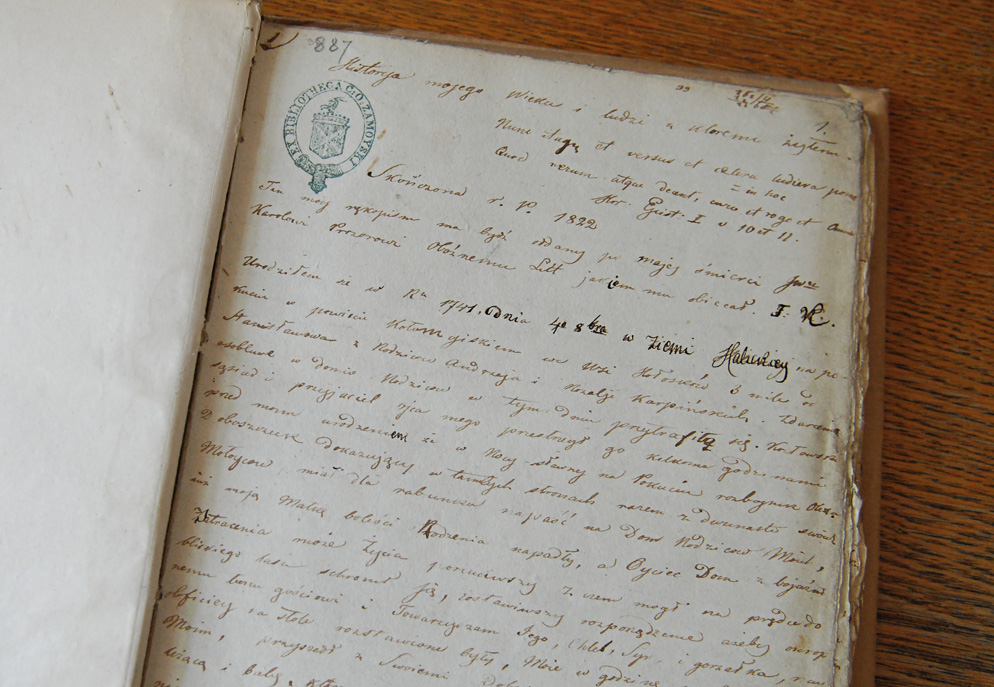 1
887
BIBLIOTHECA C. O. ZAMOYSKI
1.
Historja mojego Wieku i ludzi z ktoremi żyłem.
Nunc itaq et versus et cetera ludicra pono
Quod verum atque decens, curo et rogo et omnis
in hoc
Hor. Epist: I v 10 et 11.
Skończona r. P. 1822
Ten moy rękopism ma bydź oddany po mojej śmierci
Karolowi Prozorowi Oboźnemu Litt jakiem mu obiecał. F. K.
Urodziłem się w Ru 1741. dnia 4o 8bra w ziemi Halickiey na po-
kuciu w powiecie we wsi Hołosków 3 mile od
Stanisławowa z Rodziców Andrzeja i Rozalji Karpińskich. Zdarzenie
osobliwe w domu Rodziców w tym dniu przytrafiło się.
sąsiad i przyjaciel ojca mego przestrzegł go kilkoma godzinami
przed moim urodzeniem że w Nocy sławny na Pokuciu rozboynik
z oboszczuk dokazujący w tamtych stronach razem z dwunastu swoich
Mołoycow, miał dla rabunku napaść na Dom Rodziców Moich,
już moją Matkę boleści Rodzenia napadły, a Oyciec Dom z bojaźni
Zatracenia może Życia porzuciwszy z czem mógł na prędce do
bliskiego lasu schronił się, zostawiwszy rozporządzenie
nemu temu gościowi i Towarzyszom Jego, Chleb, Syr, i gorzałka,
obficiey na stole rozstawione były,
Moim, przyszedł z Swoiemi